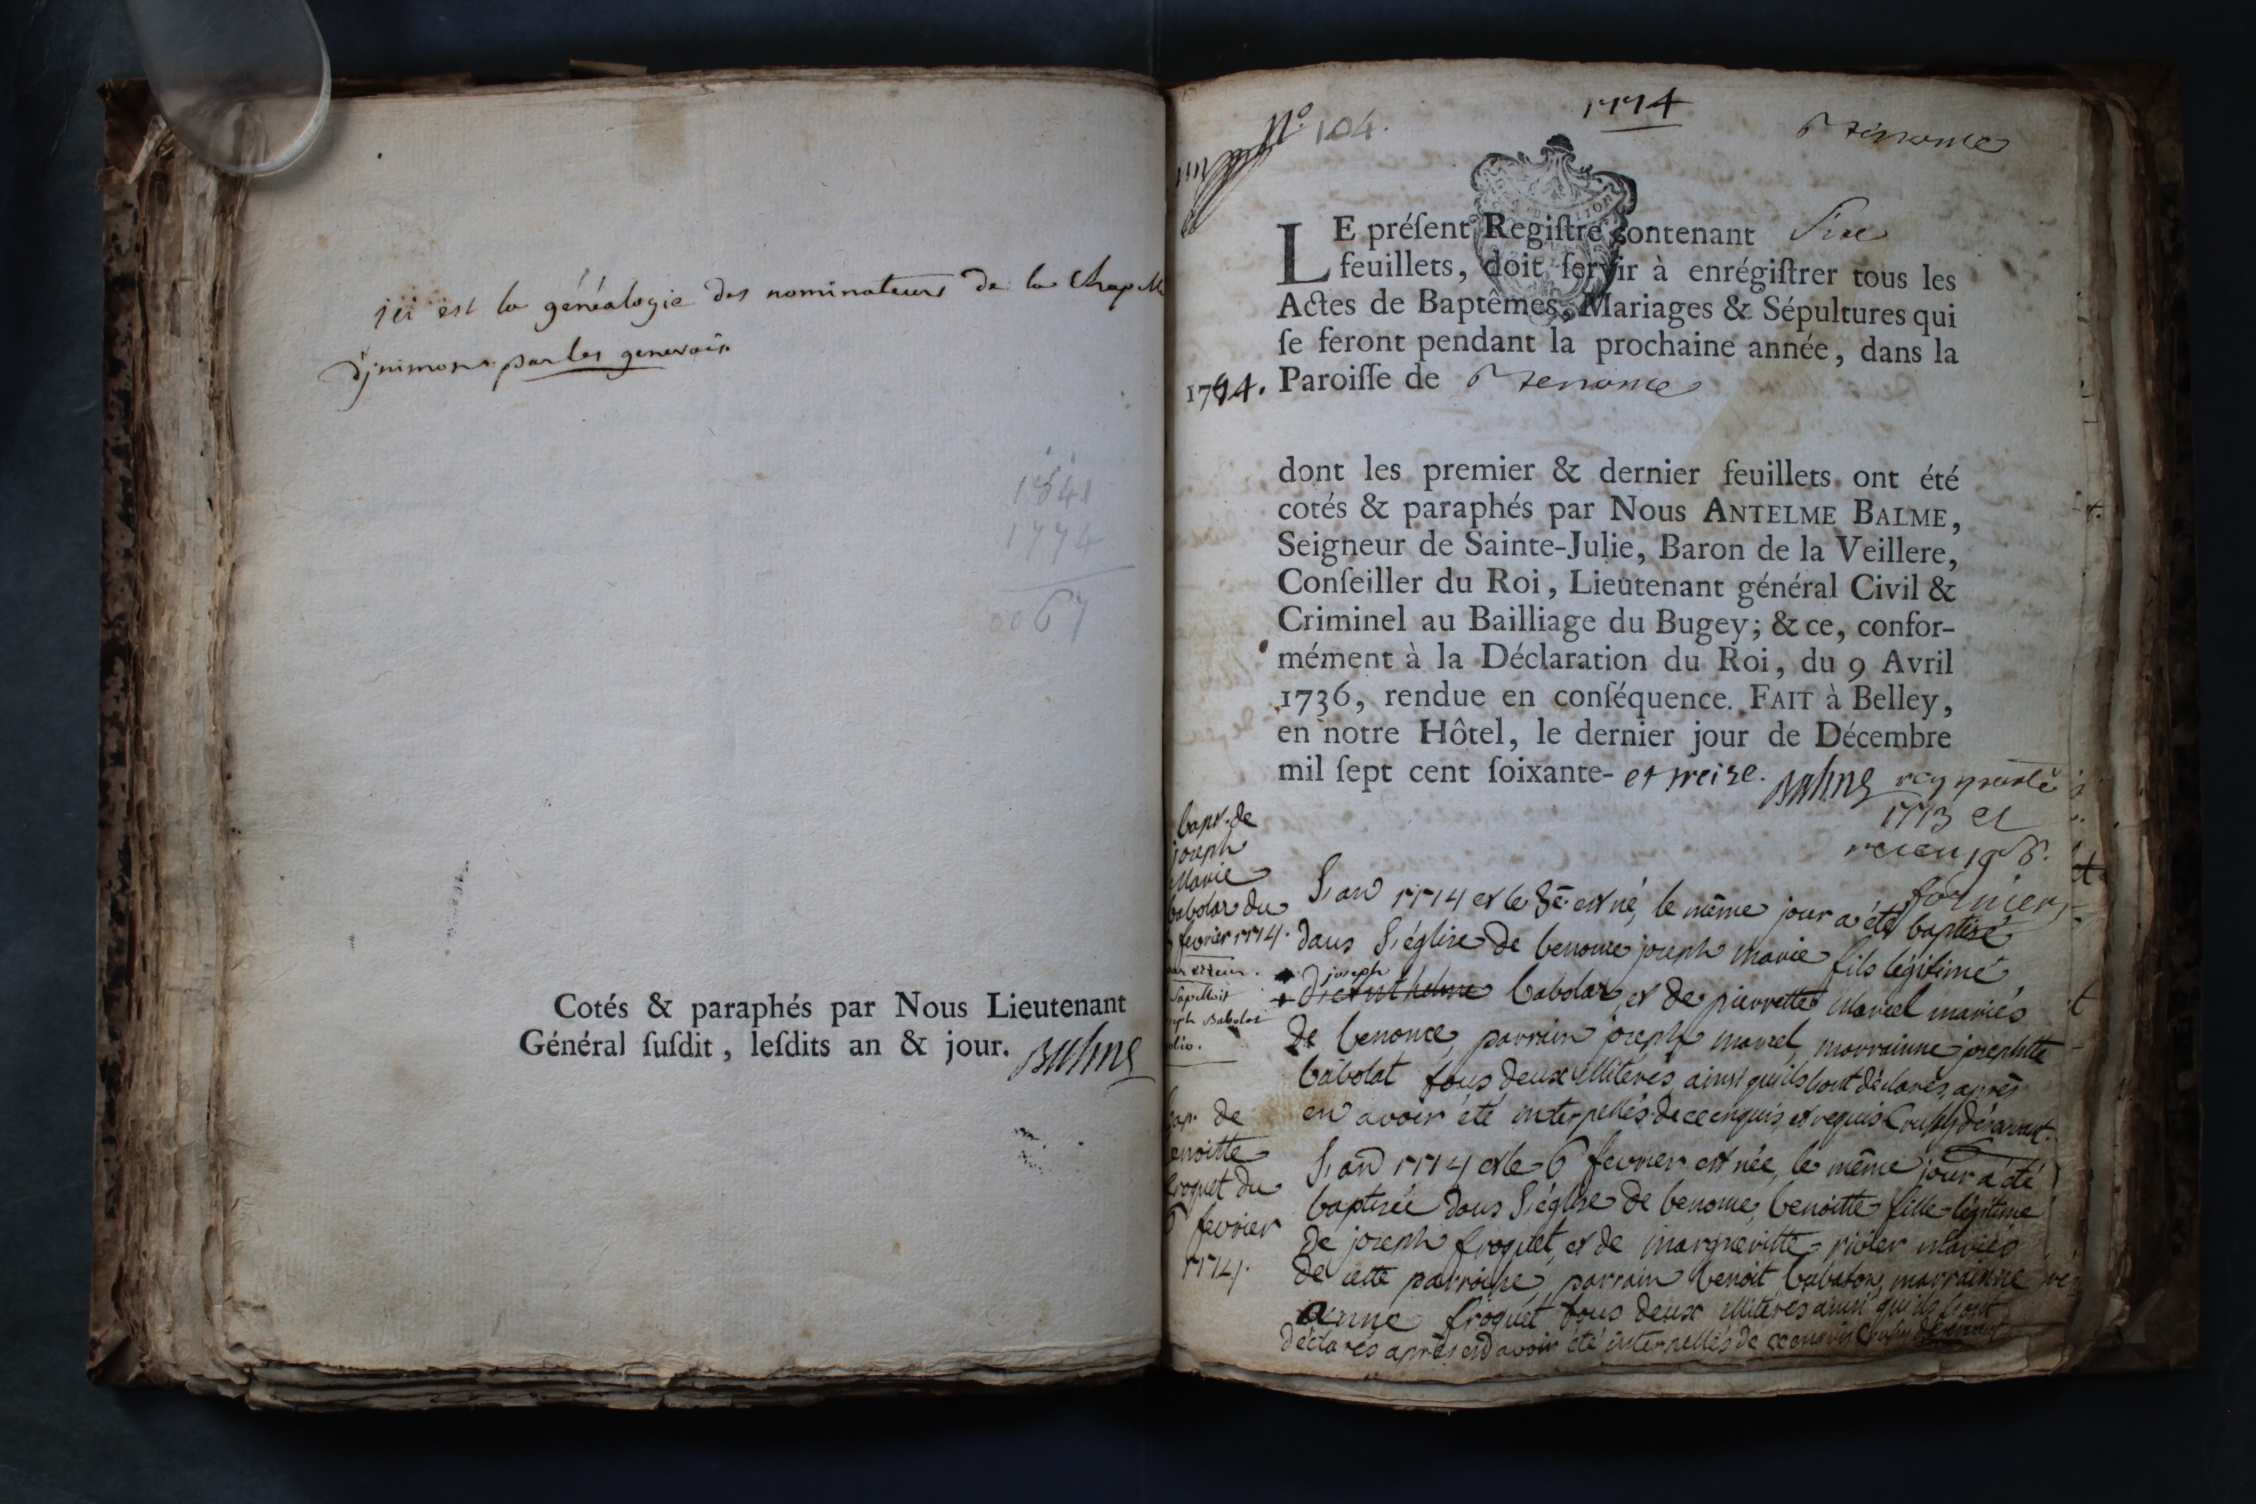 jci est la généalogie des nominateurs de la Chapelle
d'jnimont par les genevois
1841
1774
0067
Cotés & paraphés par Nous Lieutenant
Général ſuſdit, leſdits an & jour. Balme
1774
N.° 104.
Benonce
LE préſent Regiſtre contenant Six
feuillets, doit ſervir à enrégiſtrer tous les
Actes de Baptêmes, Mariages & Sépultures qui
ſe feront pendant la prochaine année, dans la
1774. Paroiſſe de Benonce
dont les premier & dernier feuillets ont été
cotés & paraphés par Nous ANTELME BALME,
Seigneur de Sainte-Julie, Baron de la Veillere,
Conſeiller du Roi, Lieutenant général Civil &
Criminel au Bailliage du Bugey; & ce, confor-
mément à la Déclaration du Roi, du 9 Avril
1736, rendue en conſéquence. FAIT à Belley,
en notre Hôtel, le dernier jour de Décembre
mil ſept cent ſoixante- et treize. Balme
1773 et
bapt. de
joseph
Marie
babolat du
fevrier 1774.
par erreur.
s'apelloit
joseph Babolat
L'an 1774 et le est né, le même jour a été baptisé
dans L'église de benonce joseph marie fils légitime
joseph
d'icanthelme babolat et de pierrette Marcel mariés
de benonce, parrain joseph marcel, marrainne josephtte
babolat tous deux illitérés, ainsi qu'ils l'ont déclarés, après
en avoir été interpellés de ce enquis et requis
bap. de
benoitte
froquet du
6 fevrier
1774.
L'an 1774 et le 6 fevrier est née, le même jour a été
baptisée dans L'église de benonce, benoitte fille légitime
de joseph froquet, et de margueritte mariés
de cette parroisse, parrain benoit babolat, marrainne
anne froquet tous deux illitérés ainsi qu'ils l'ont
déclarés après en avoir été interpellés de ce enquis